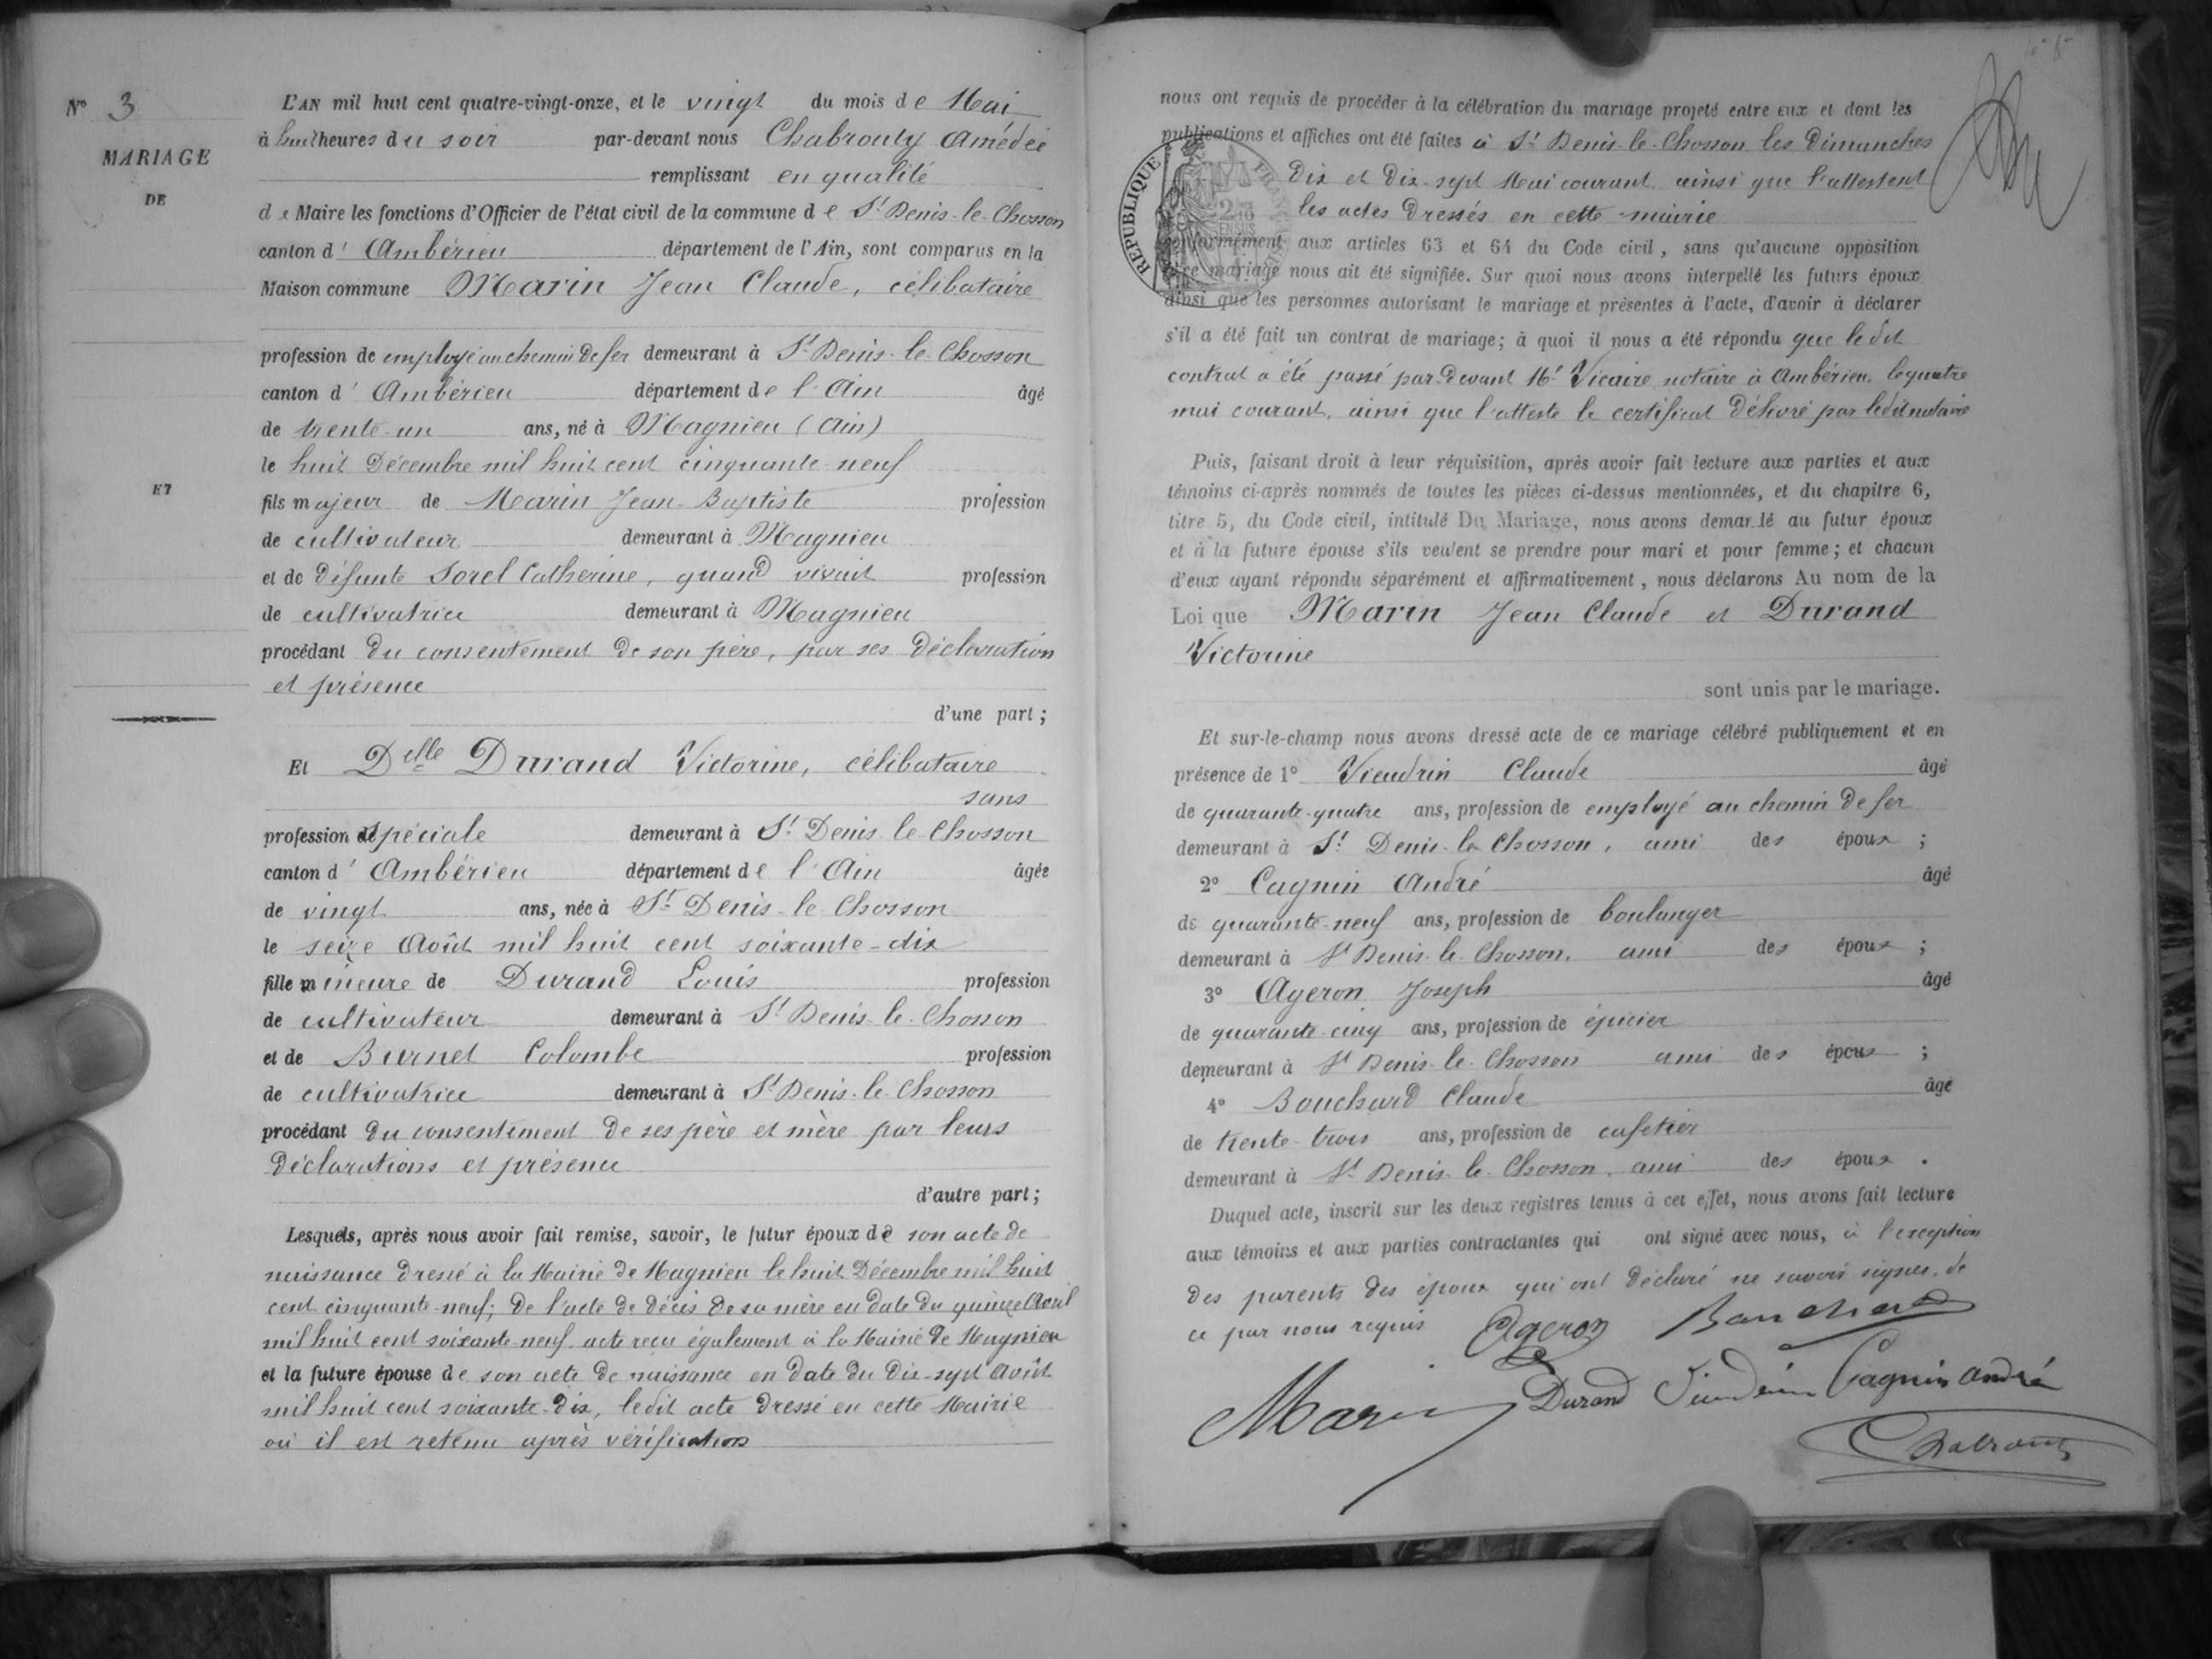 N° 3
MARIAGE
DE
ET
L'AN mil huit cent quatre-vingt-onze, et le vingt du mois de Mai
à huit heures du soir par-devant nous Chabrouty Amédée
remplissant en qualité
de Maire les fonctions d'Officier de l'état civil de la commune de St Denis-le-Chosson
canton d' Ambérieu département de l'Ain, sont comparus en la
Maison commune Marin Jean Claude, célibataire
profession de employé au chemin de fer demeurant à St Denis-le-Chosson
canton d' Ambérieu département de l'Ain âgé
de trente-un ans, né à Magnieu (Ain)
le huit Décembre mil huit cent cinquante-neuf
fils majeur de Marin Jean-Baptiste profession
de cultivateur demeurant à Magnieu
et de défunte Sorel Catherine, quand vivait profession
de cultivatrice demeurant à Magnieu
procédant du consentement de son père, par ses déclaration
et présence
d'une part ;
Et Delle Durand Victorine, célibataire
sans
profession spéciale demeurant à St Denis-le-Chosson
canton d' Ambérieu département de l'Ain âgée
de vingt ans, née à St Denis-le-Chosson
le seize Août mil huit cent soixante-dix
fille mineure de Durand Louis profession
de cultivateur demeurant à St Denis-le-Chosson
et de Burnet Colombe profession
de cultivatrice demeurant à St Denis-le-Chosson
procédant du consentement de ses père et mère par leurs
déclarations et présence
d'autre part ;
Lesquels, après nous avoir fait remise, savoir, le futur époux de son acte de
naissance dressé à la Mairie de Magnieu le huit Décembre mil huit
cent cinquante-neuf; de l'acte de décès de sa mère en date du quinze Avril
mil huit cent soixante-neuf, acte reçu également à la Mairie de Magnieu
et la future épouse de son acte de naissance en date du dix-sept Août
mil huit cent soixante-dix, ledit acte dressé en cette Mairie
où il est retenu après vérification
nous ont requis de procéder à la célébration du mariage projeté entre eux et dont les
publications et affiches ont été faites à St Denis-le-Chosson les Dimanches
dix et dix-sept Mai courant ainsi que l'attestent
les actes dressés en cette mairie
conformément aux articles 63 et 64 du Code civil, sans qu'aucune opposition
à ce mariage nous ait été signifiée. Sur quoi nous avons interpellé les futurs époux
ainsi que les personnes autorisant le mariage et présentes à l'acte, d'avoir à déclarer
s'il a été fait un contrat de mariage; à quoi il nous a été répondu que ledit
contrat a été passé par-devant Me Vicaire notaire à Ambérieu le quatre
mai courant, ainsi que l'atteste le certificat délivré par ledit notaire
REPUBLIQUE FRANÇAISE
Puis, faisant droit à leur réquisition, après avoir fait lecture aux parties et aux
témoins ci-après nommés de toutes les pièces ci-dessus mentionnées, et du chapitre 6,
titre 5, du Code civil, intitulé Du Mariage, nous avons demandé au futur époux
et à la future épouse s'ils veulent se prendre pour mari et pour femme; et chacun
d'eux ayant répondu séparément et affirmativement, nous déclarons Au nom de la
Loi que Marin Jean Claude et Durand
Victorine
sont unis par le mariage.
Et sur-le-champ nous avons dressé acte de ce mariage célébré publiquement et en
présence de 1° Vieudrin Claude âgé
de quarante-quatre ans, profession de employé au chemin de fer
demeurant à St Denis-le-Chosson, ami des époux ;
2° Cagnin André âgé
de quarante-neuf ans, profession de boulanger
demeurant à St Denis-le-Chosson, ami des époux ;
3° Ageron Joseph âgé
de quarante-cinq ans, profession de épicier
demeurant à St Denis-le-Chosson ami des époux ;
4° Bouchard Claude âgé
de trente-trois ans, profession de cafetier
demeurant à St Denis-le-Chosson, ami des époux .
Duquel acte, inscrit sur les deux registres tenus à cet effet, nous avons fait lecture
aux témoins et aux parties contractantes qui ont signé avec nous, à l'exception
des parents des époux qui ont déclaré ne savoir signer, de
ce par nous requis Ageron Bouchard
Marin Durand Vieudrin Cagnin André
Chabrouty